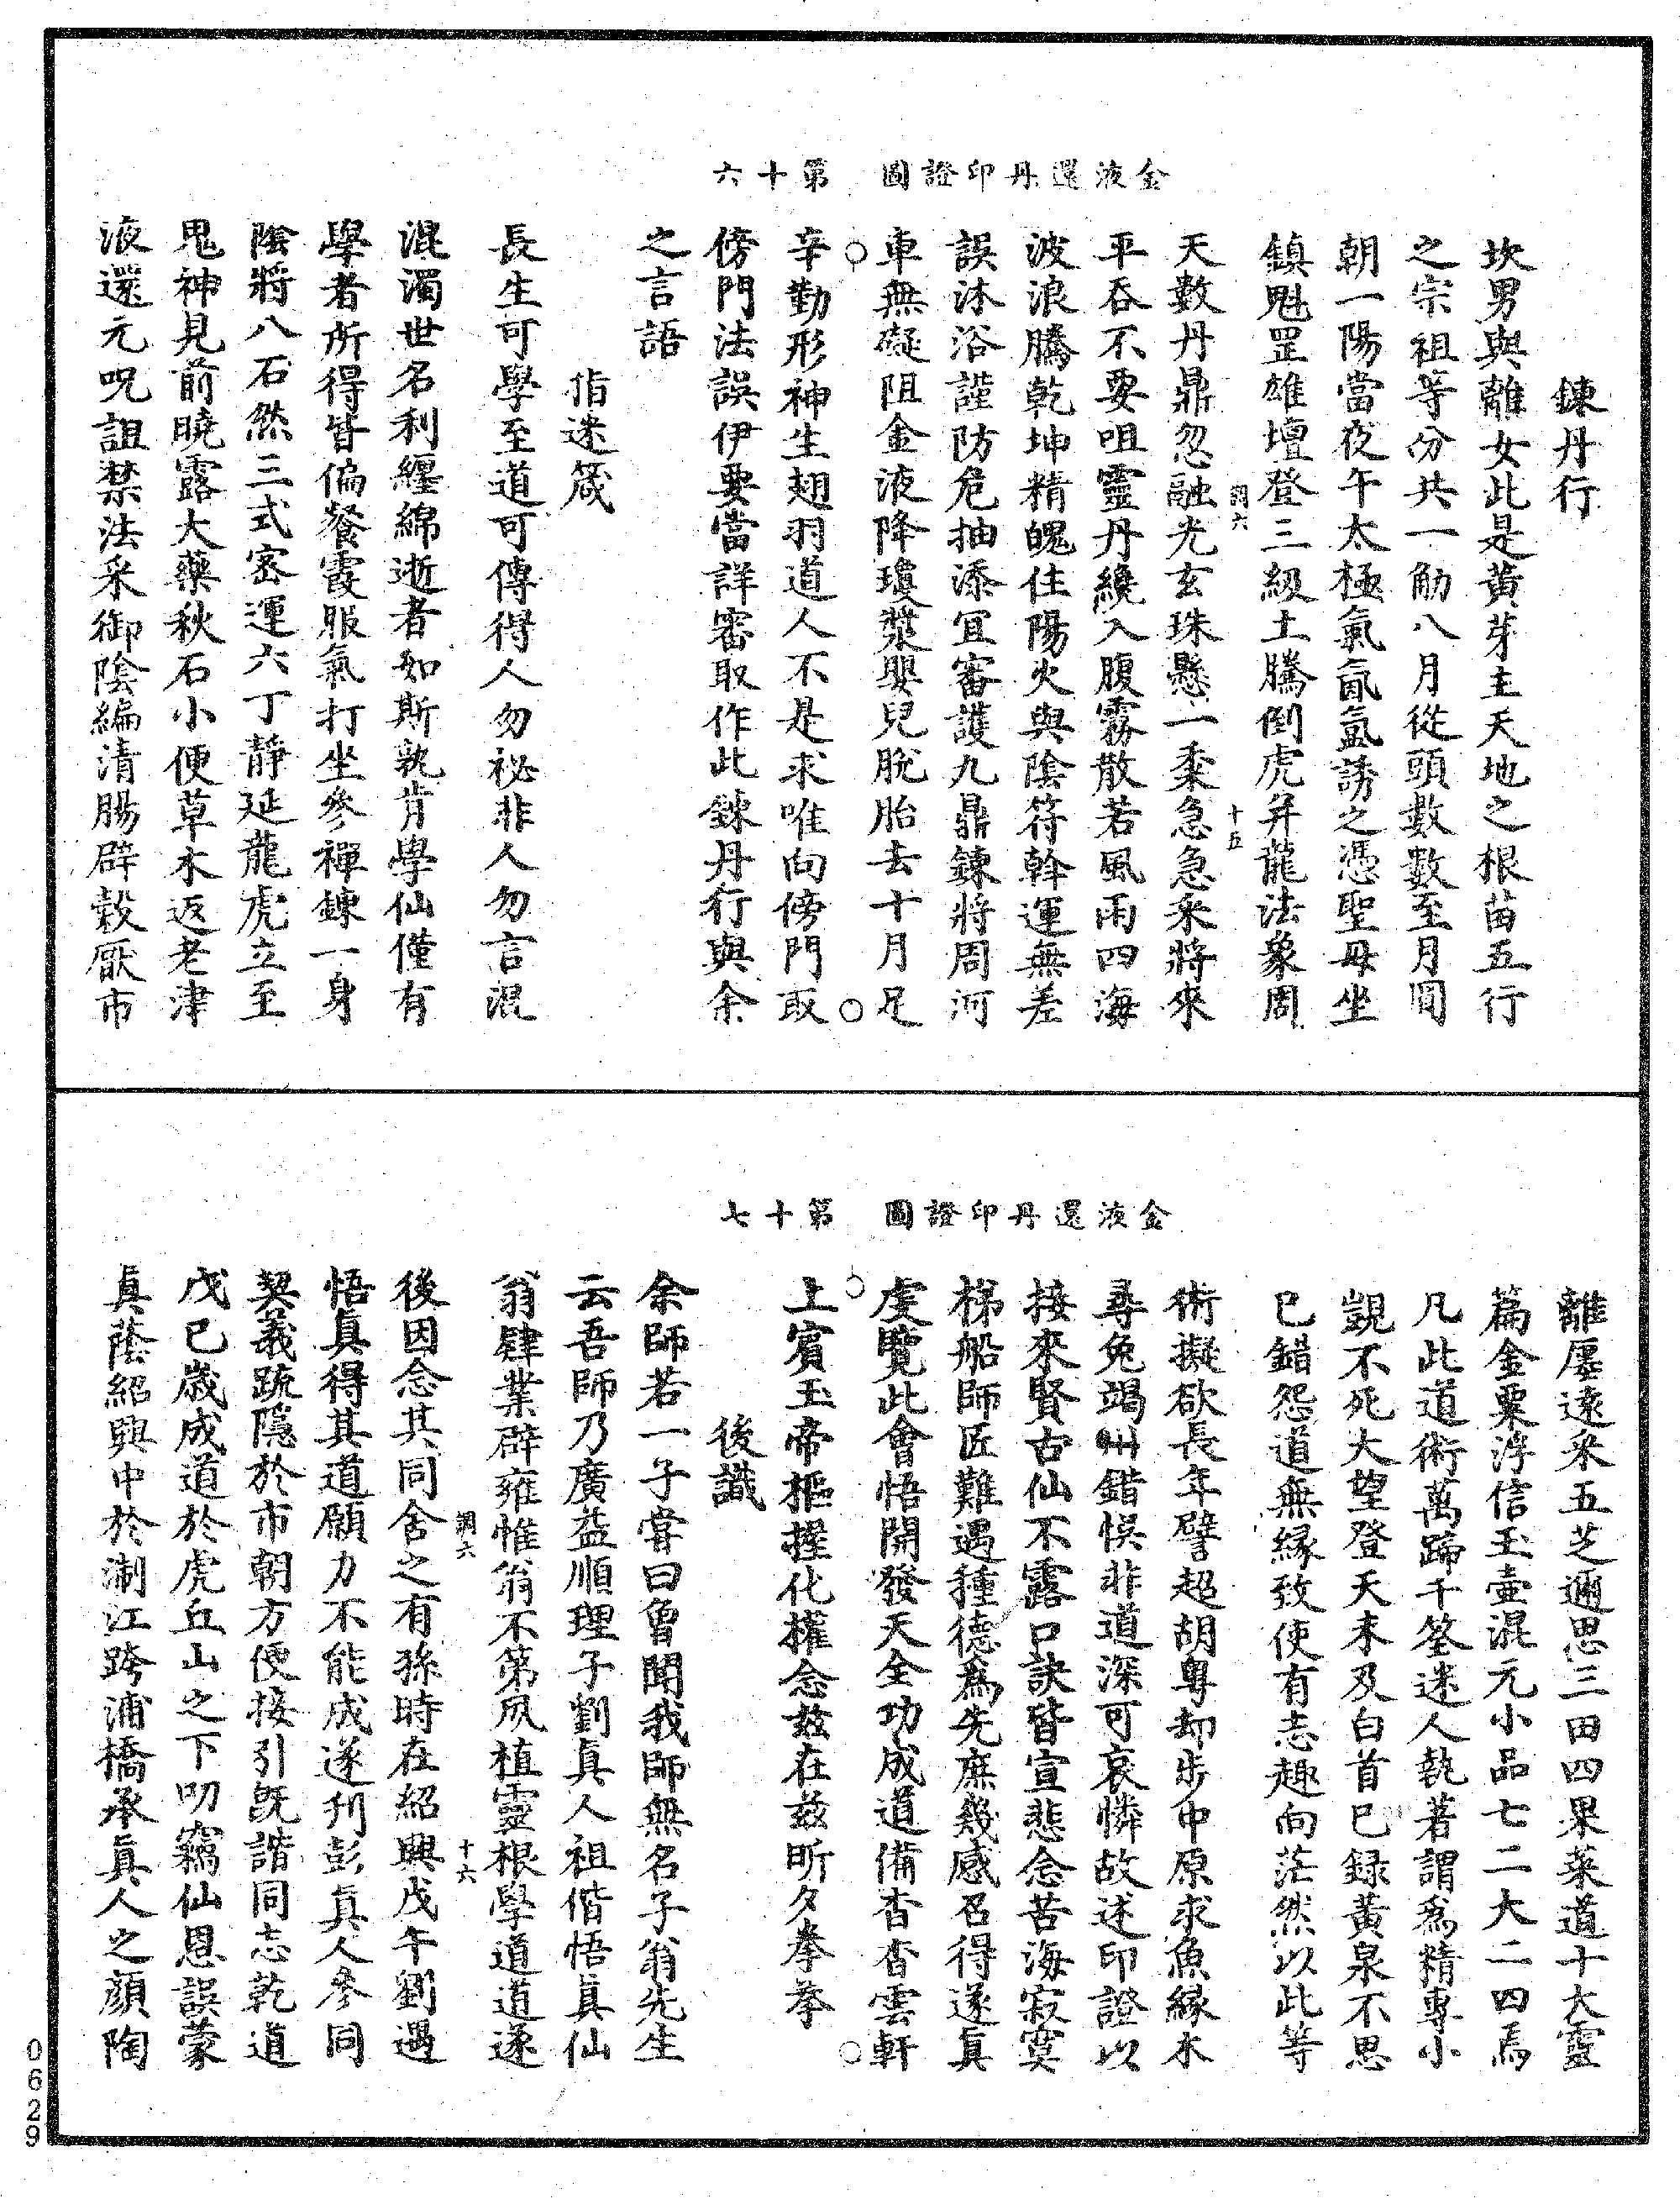 金液還丹印證圖　第十六
鍊丹行
坎男與離女此是黃芽主天地之根苗五行
之宗祖等分共一觔八月從頭數數至月圓
朝一陽當夜午太極氣氤氳誘之憑聖母坐
鎮魁罡雄壇登三級土騰倒虎并龍法象周
調六　十五
天數丹鼎忽融光玄珠懸一黍急急采將來
平吞不要咀靈丹纔入腹霧散若風雨四海
波浪騰乾坤精魄住陽火與陰符幹運無差
誤沐浴謹防危抽添宜審護九鼎鍊將周河
車無礙阻金液降瓊漿嬰兒脫胎去十月足
辛勤形神生翅羽道人不是求唯向傍門取
傍門法誤伊要當詳審取作此鍊丹行與余
之言語
指迷箴
長生可學至道可傳得人勿祕非人勿言混
混濁世名利纏綿逝者如斯孰肯學仙僅有
學者所得皆偏餐霞服氣打坐參禪鍊一身
陰將八石然三式密運六丁靜延龍虎立至
鬼神見前曉露大藥秋石小便草木返老津
液還元呪詛禁法采御陰編清腸辟穀厭市
金液還丹印證圖　第十七
離屢遠采五芝邇思三田四果菜道十大靈
篇金粟浮信玉壺混元小品七二大二四焉
凡此道術萬蹄千筌迷人執著謂爲精專小
覬不死大望登天未及白首已録黃泉不思
已錯怨道無緣致使有志趣向茫然以此等
術擬欲長年譬超胡粤却步中原求魚緣木
尋兔竭州錯悞非道深可哀憐故述印證以
接來賢古仙不露口訣皆宣悲念苦海寂寞
梯船師匠難遇種德爲先庶幾感召得遂真
虔覽此會悟開發天全功成道備杳杳雲軒
上賓玉帝樞握化權念兹在兹昕夕拳拳
後識
余師若一子嘗曰曾聞我師無名子翁先生
云吾師乃廣益順理子劉真人祖偕悟真仙
翁肄業辟雍惟翁不第夙植靈根學道道遂
調六　十六
後因念其同舍之有孫時在紹興戊午劉遇
悟真得其道願力不能成遂刋彭真人參同
契義疏隱於市朝方便接引既諧同志乾道
戊己歲成道於虎丘山之下叨竊仙恩誤蒙
真蔭紹興中於淛江跨浦橋承真人之顔陶
0629